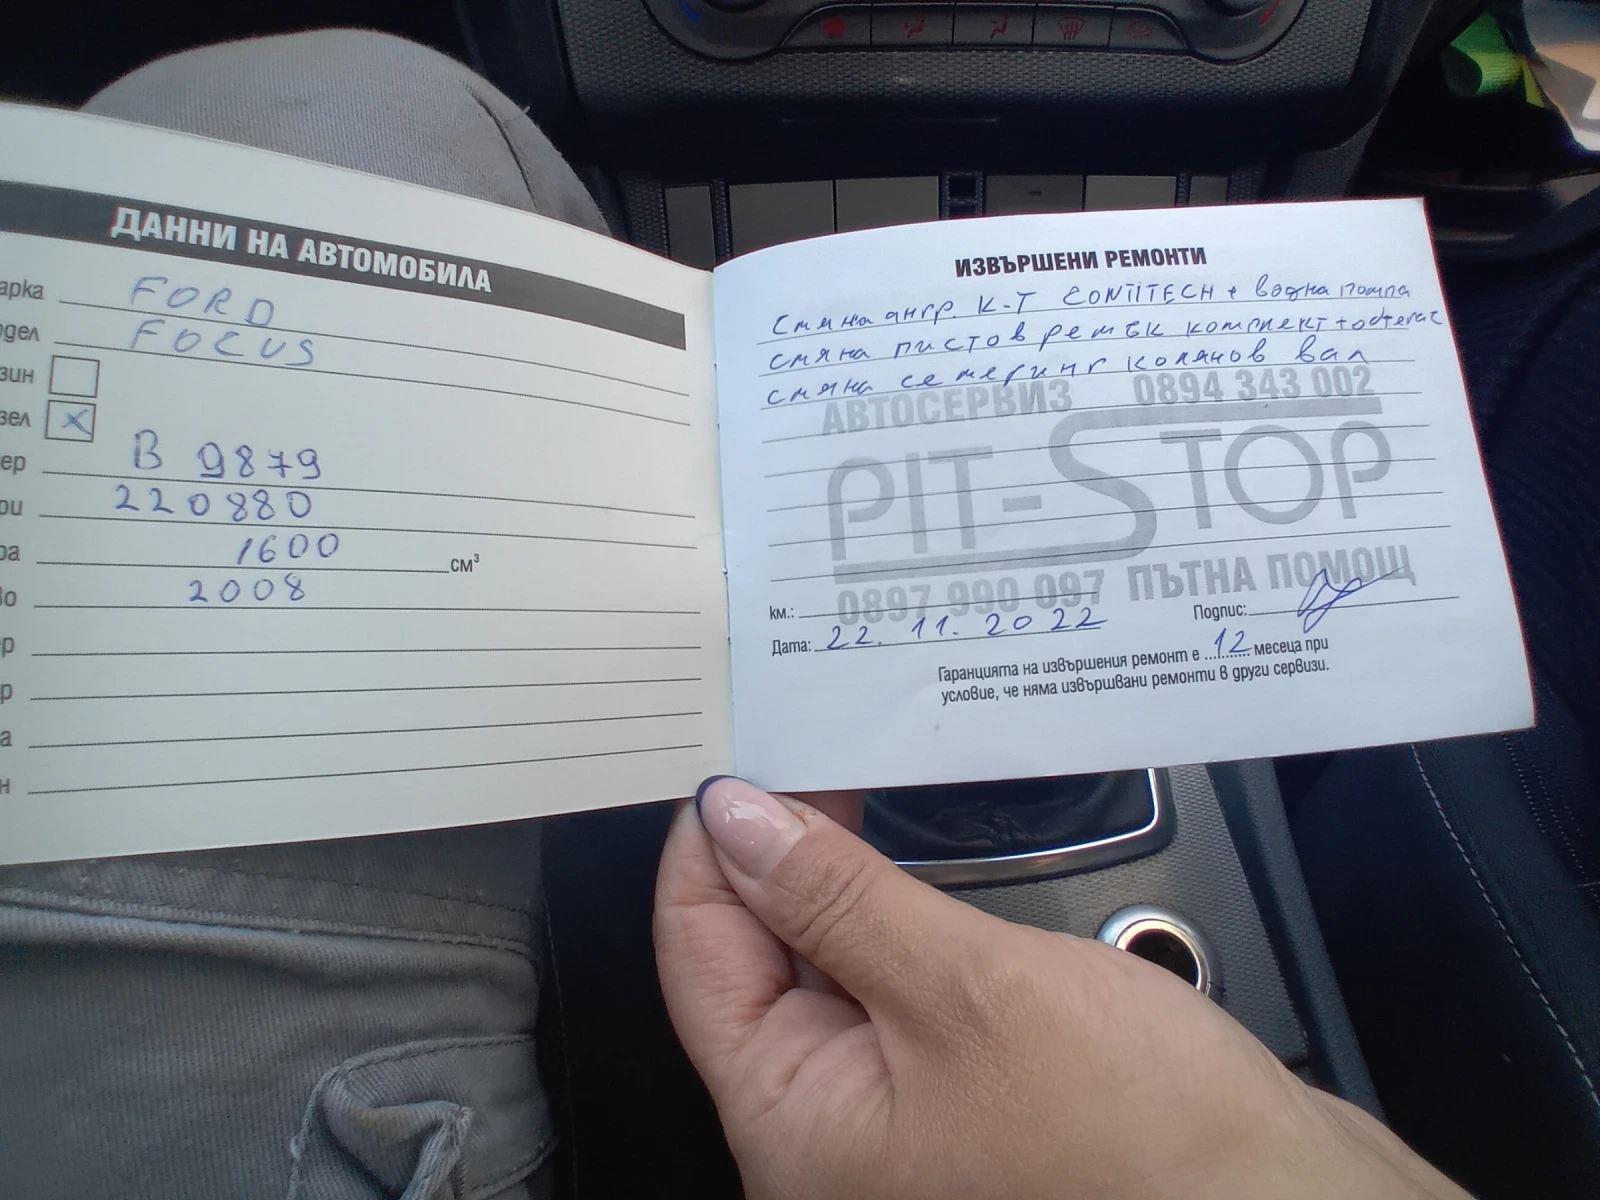 ДАННИ НА АВТОМОБИЛА
арка FORD
одел FOCUS
зин
зел X
ер В 9879
ри 220880
ра 1600 см³
во 2008
р
р
а
н
ИЗВЪРШЕНИ РЕМОНТИ
Смяна ангр. К-Т CONTITECH + водна помпа
смяна пистов ремък комплект + обтегач
смяна семеринг колянов вал
АВТОСЕРВИЗ 0894 343 002
PIT-STOP
0897 990 097 ПЪТНА ПОМОЩ
км.:
Подпис:
Дата: 22. 11. 2022
Гаранцията на извършения ремонт е 12 месеца при
условие, че няма извършвани ремонти в други сервизи.